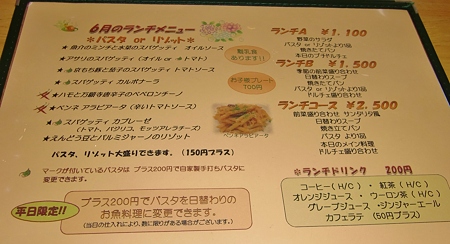 6月のランチメニュー
＊パスタ or リゾット＊
★森介のミンチと水菜のスパゲッティ オイルソース
★アサリのスパゲッティ（オイル or トマト）
★京もち豚と茄子のスパゲッティ トマトソース
★スパゲッティ カルボナーラ
★ハモと万願寺唐辛子のペペロンチーノ
★ペンネ アラビアータ（辛いトマトソース）
★スパゲッティ カプレーゼ
（トマト、バジリコ、モッツアレラチーズ）
★えんどう豆とパルミジャーノのリゾット
パスタ、リゾット大盛りできます。（150円プラス）
マークが付いているパスタは プラス200円で自家製手打ちパスタに
変更できます。
平日限定!!
プラス200円でパスタを日替わりの
お魚料理に変更できます。
（当日の仕入れにより、数に限りがある場合がございます）
離乳食
あります!!
お子様プレート
700円
ペンネアラビアータ
ランチA ￥1.100
野菜のサラダ
パスタ or リゾットより1品
焼き立てパン
本日のプチドルチェ
ランチB ￥1.500
季節の前菜盛り合わせ
日替わりスープ
焼き立てパン
パスタ or リゾットより1品
ドルチェ盛り合わせ
ランチコース ￥2.500
前菜盛り合わせ サンタリタ風
日替わりスープ
焼き立てパン
パスタ より1品
本日のメイン料理
ドルチェ盛り合わせ
＊ランチドリンク 200円
コーヒー（H/C）・ 紅茶（H/C）
オレンジジュース ・ ウーロン茶（H/C）
グレープジュース ・ジンジャーエール
カフェラテ （50円プラス）